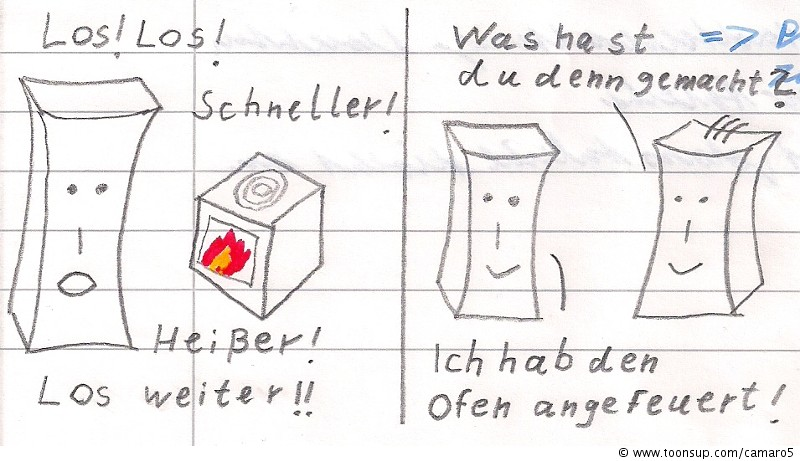 Los! Los!
Schneller!
Heißer!
Los weiter!!
Was hast => P
du denn gemacht?
Ich hab den
Ofen angefeuert!
© www.toonsup.com/camaro5